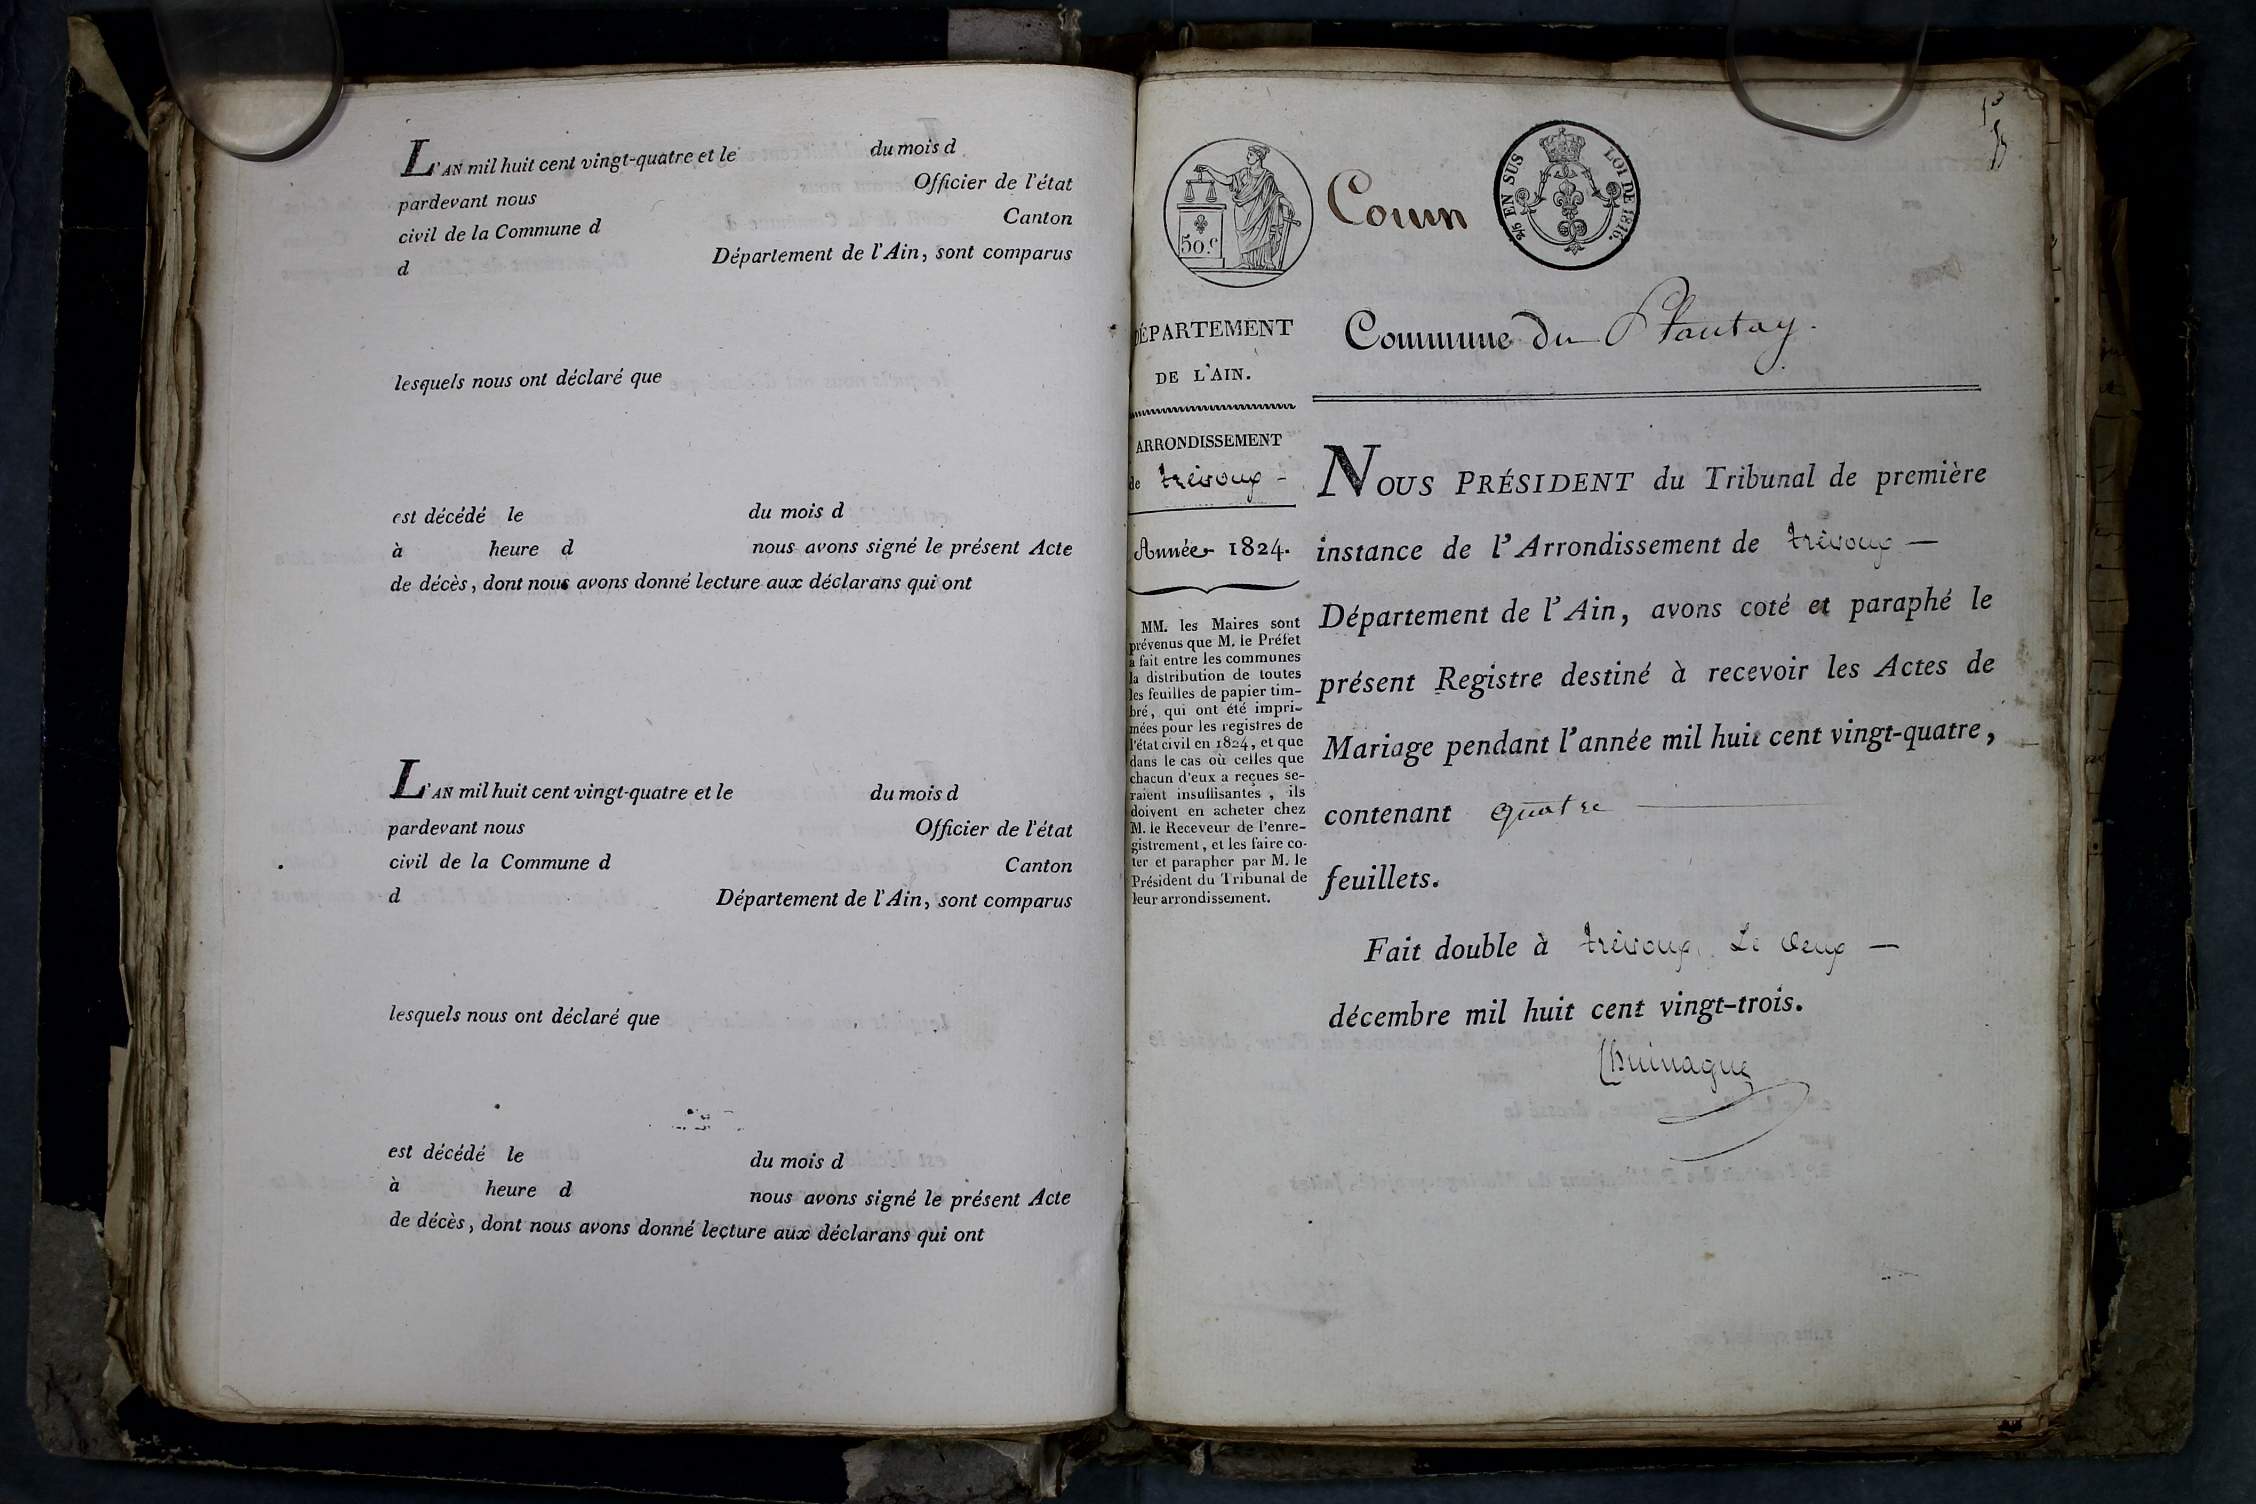 L'AN mil huit cent vingt-quatre et le du mois d
pardevant nous Officier de l'état
civil de la Commune d Canton
d Département de l'Ain, sont comparus
lesquels nous ont déclaré que
est décédé le du mois d
à heure d nous avons signé le présent Acte
de décès, dont nous avons donné lecture aux déclarans qui ont
L'AN mil huit cent vingt-quatre et le du mois d
pardevant nous Officier de l'état
civil de la Commune d Canton
d Département de l'Ain, sont comparus
lesquels nous ont déclaré que
est décédé le du mois d
à heure d nous avons signé le présent Acte
de décès, dont nous avons donné lecture aux déclarans qui ont
50.c
EN SUS LOI DE 1816.
DÉPARTEMENT
DE L'AIN.
ARRONDISSEMENT
de trévoux -
Année 1824.
MM. les Maires sont
prévenus que M. le Préfet
a fait entre les communes
la distribution de toutes
les feuilles de papier tim-
bré, qui ont été impri-
mées pour les registres de
l'état civil en 1824, et que
dans le cas où celles que
chacun d'eux a reçues se-
raient insuffisantes, ils
doivent en acheter chez
M. le Receveur de l'enre-
gistrement, et les faire co-
ter et parapher par M. le
Président du Tribunal de
leur arrondissement.
Commune du Plantay.
NOUS PRÉSIDENT du Tribunal de première
instance de l'Arrondissement de trévoux —
Département de l'Ain, avons coté et paraphé le
présent Registre destiné à recevoir les Actes de
Mariage pendant l'année mil huit cent vingt-quatre,
contenant quatre
feuillets.
Fait double à trévoux, Le deux —
décembre mil huit cent vingt-trois.